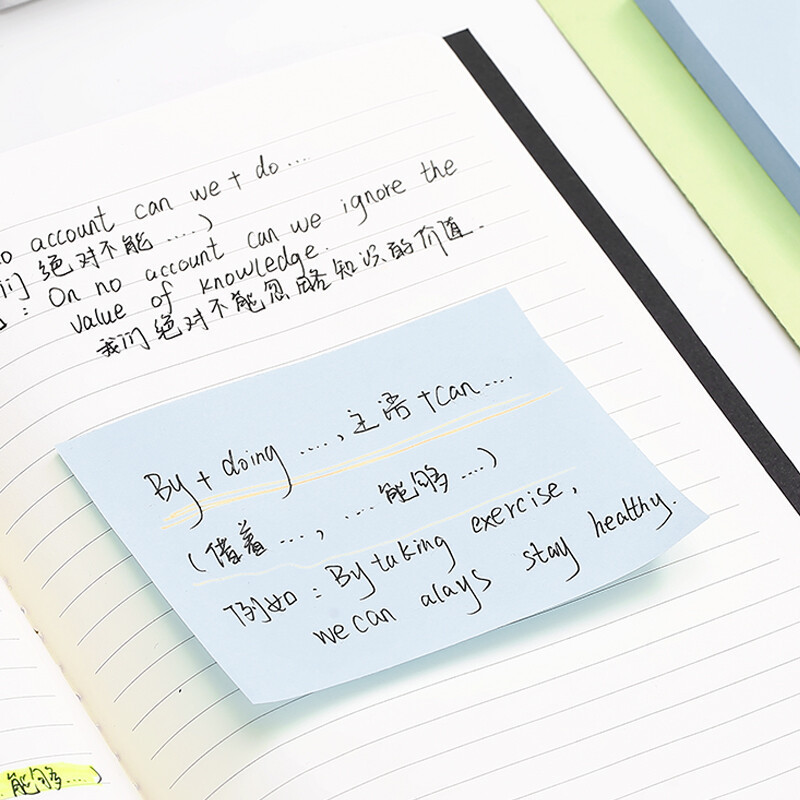 no account can we + do ....
们 绝对不能 .....)
: On no account can we ignore the
value of knowledge.
我们绝对不能忽略知识的价值.
By + doing ...., 主语 + can ....
(借着 ...., .... 能够 ....)
例如: By taking exercise,
we can alays stay healthy.
能够....)